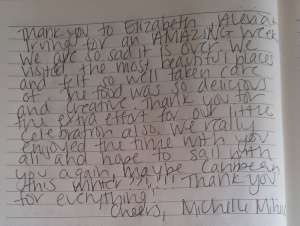 Thank you to Elizabeth, Alena &
Irving for an AMAZING week
We are so sad it is over. We
visited the most beautiful places
and felt so well taken care
of. The food was so delicious
and creative. Thank you for
the extra effort for our little
celebration also. We really
enjoyed the time with you
all and hope to sail with
you again, maybe Caribbean
this winter ?!?!? Thank you
for everything,
Cheers, Michelle